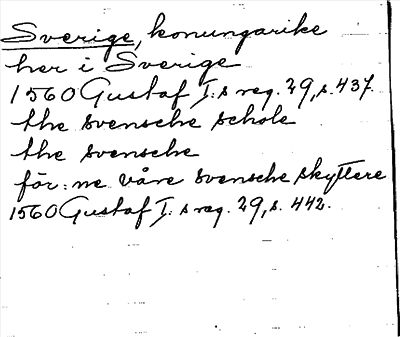 Sverige, konungarike
her i Sverige
1560 Gustaf I:s reg. 29, s. 437.
the svensche schole
the svensche
för:ne våre svensche skyttere
1560 Gustaf I:s reg. 29, s. 442.